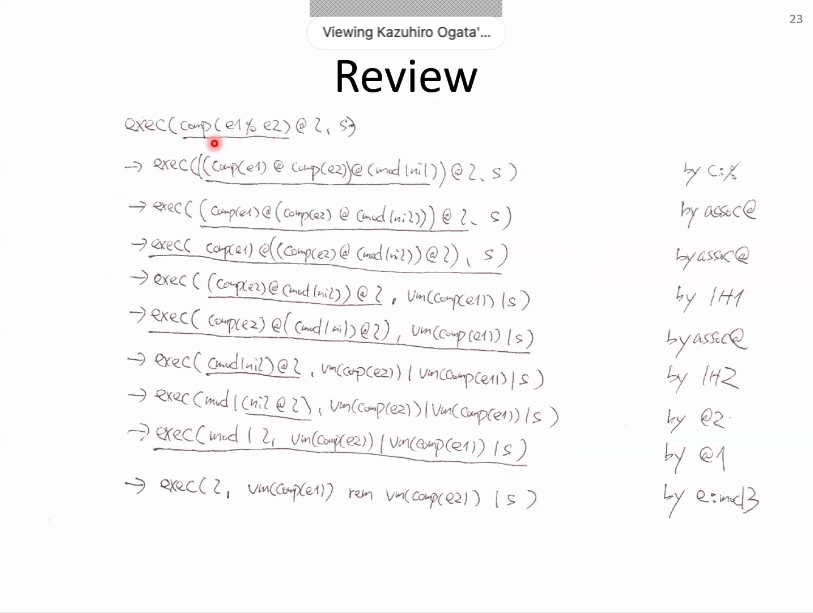 Viewing Kazuhiro Ogata'...
23
Review
exec(comp(e1 % e2) @ l, s)
→ exec(((comp(e1) @ comp(e2)) @ (mod | nil)) @ l, s) by c:%
→ exec((comp(e1) @ (comp(e2) @ (mod | nil))) @ l, s) by assoc@
→ exec(comp(e1) @ ((comp(e2) @ (mod | nil)) @ l), s) by assoc@
→ exec((comp(e2) @ (mod | nil)) @ l, vm(comp(e1)) | s) by IH1
→ exec(comp(e2) @ ((mod | nil) @ l), vm(comp(e1)) | s) by assoc@
→ exec((mod | nil) @ l, vm(comp(e2)) | vm(comp(e1)) | s) by IH2
→ exec(mod | (nil @ l), vm(comp(e2)) | vm(comp(e1)) | s) by @2
→ exec(mod | l, vm(comp(e2)) | vm(comp(e1)) | s) by @1
→ exec(l, vm(comp(e1)) rem vm(comp(e2)) | s) by e:mod3